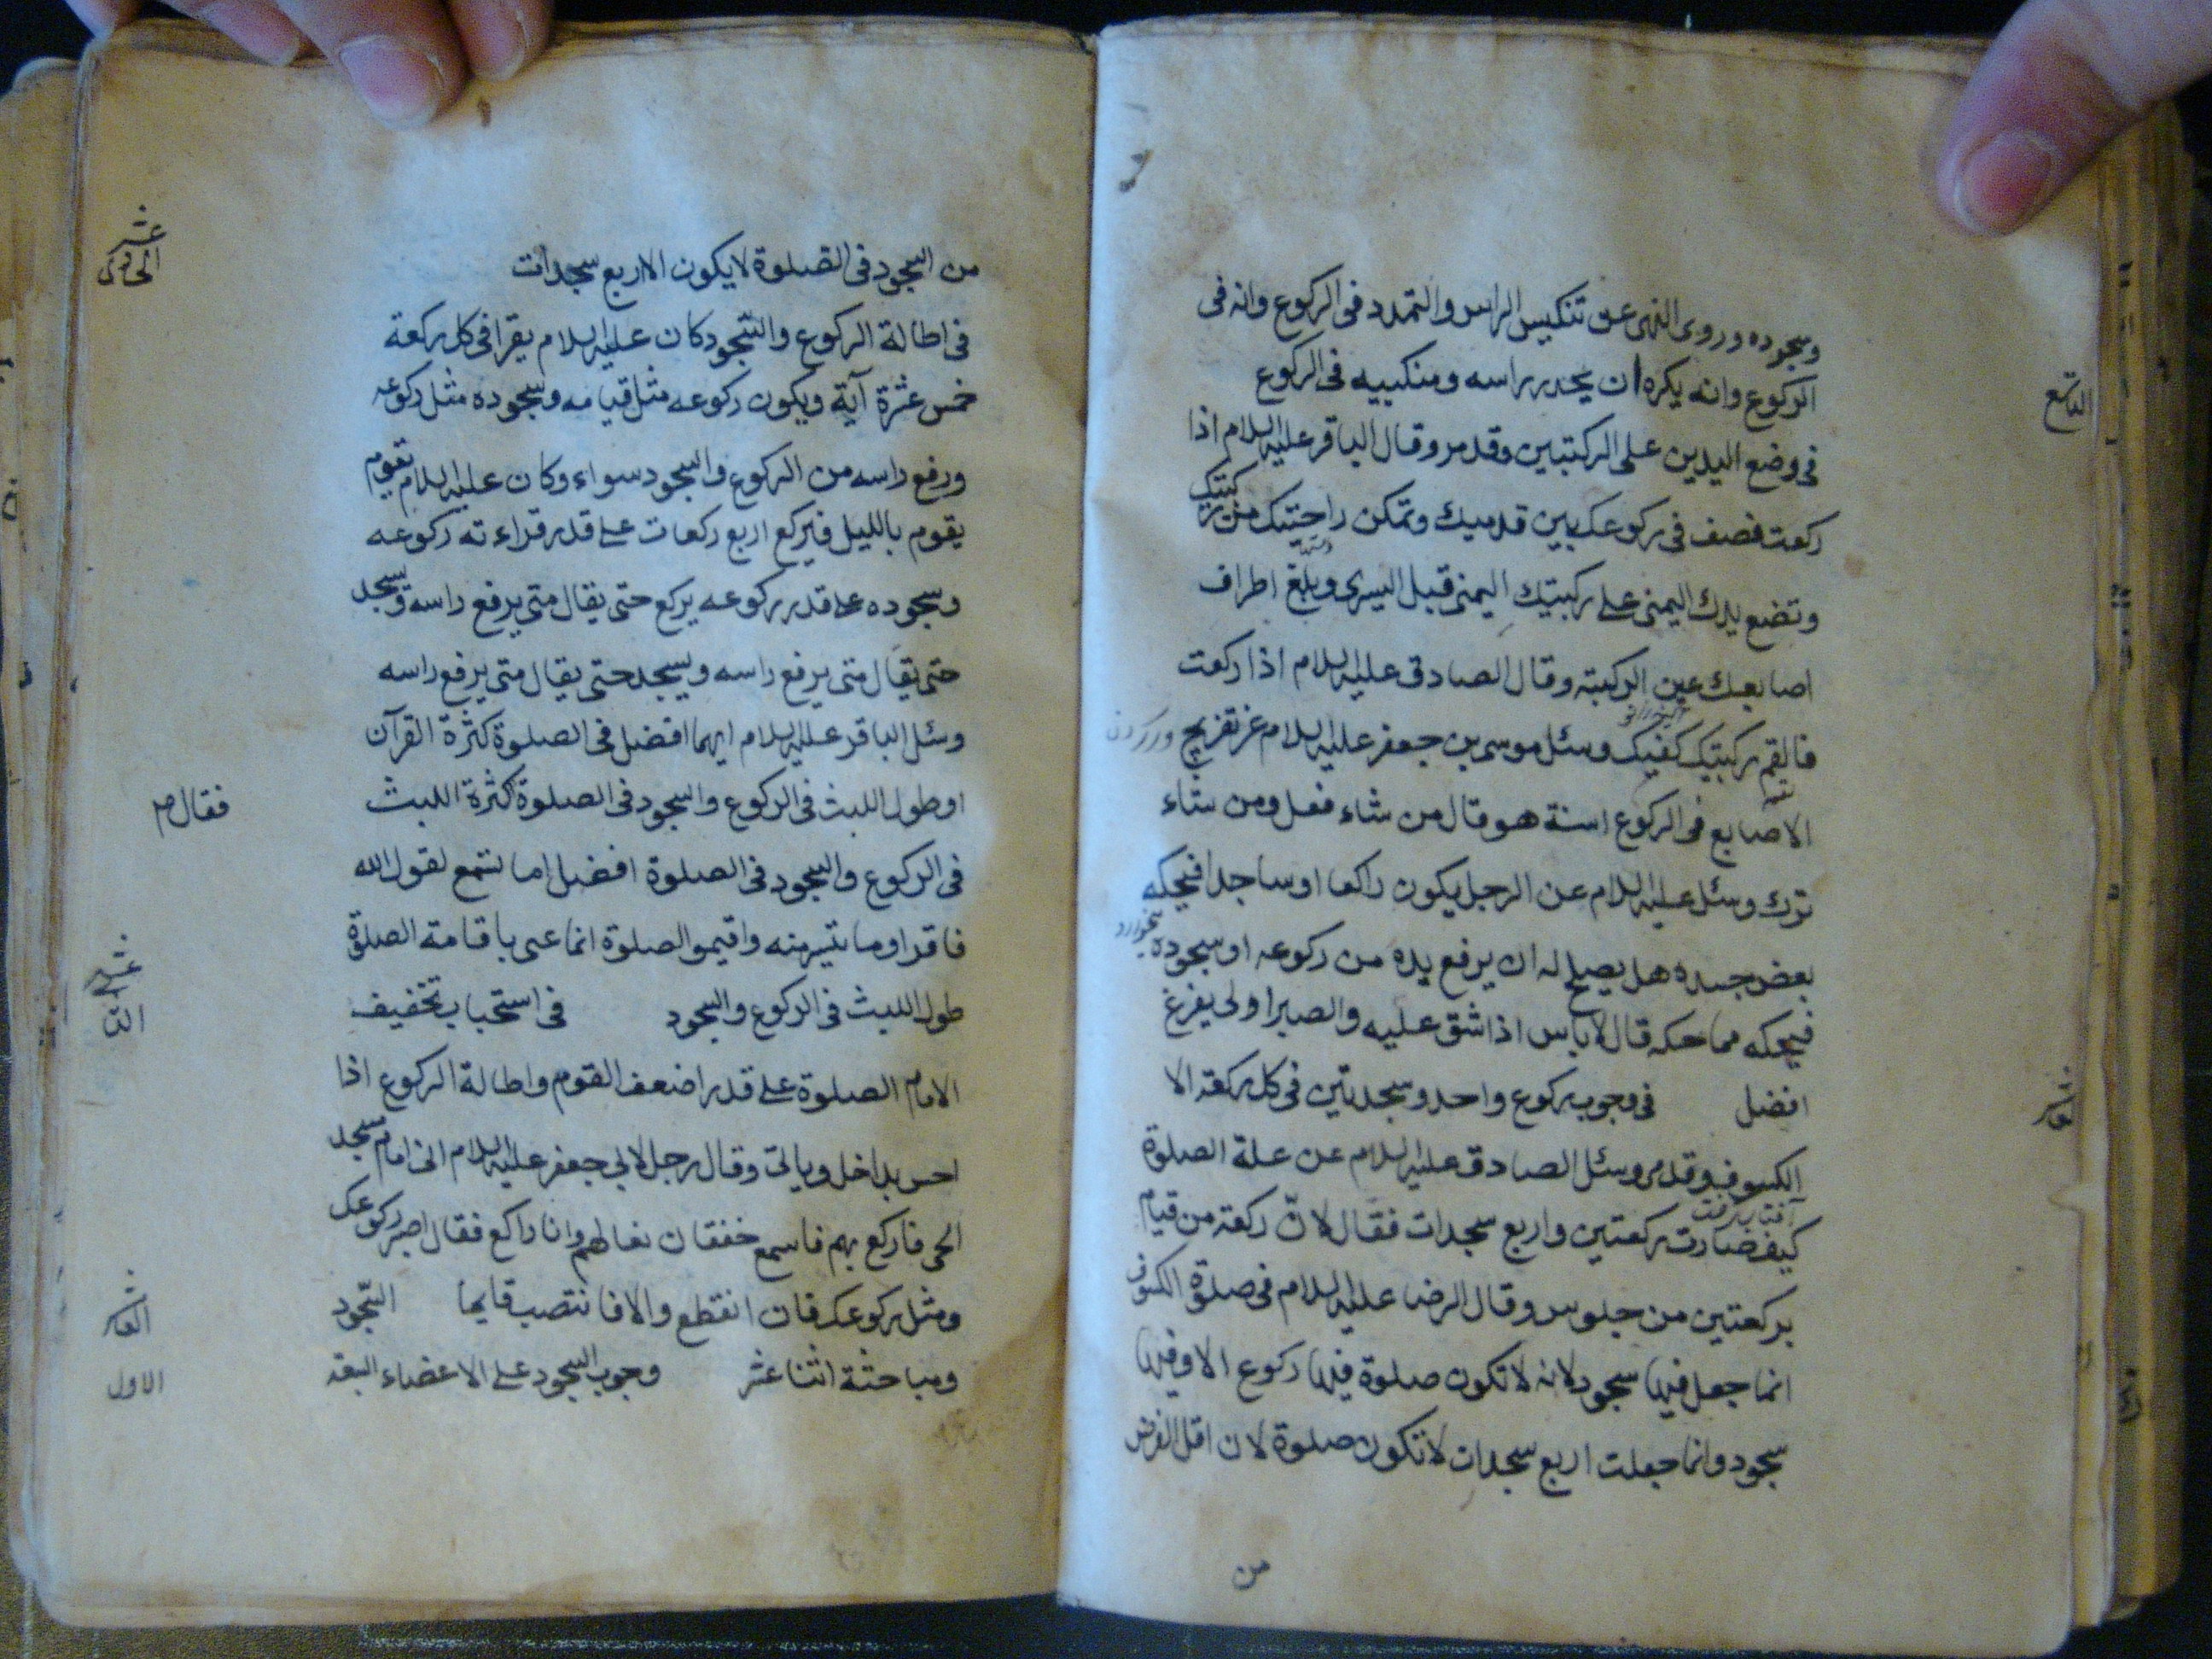 وسجوده وروى النهى عن تنكيس الراس والتمدد فى الركوع وانه فى
التاسع
الركوع وانه يكره ان يحدر راسه ومنكبيه فى الركوع
فى وضع اليدين على الركبتين وقد مر وقال الباقر عليه السلام اذا
ركعت فصف فى ركوعك بين قدميك وتمكن راحتيك من ركبتيك
وتضع يدك اليمنى على ركبتيك اليمنى قبل اليسرى وبلغ اطراف
اصابعك عين الركبته وقال الصادق عليه السلام اذا ركعت
فالقم ركبتيك كفيك وسئل موسى بن جعفر عليه السلام عن تفريج
الاصابع فى الركوع اسنة هو قال من شاء فعل ومن شاء
ترك وسئل عليه السلام عن الرجل يكون راكعا او ساجدا فيحكه
بعض جسده هل يصلح له ان يرفع يده من ركوعه او سجوده
فيحكه مما حكه قال لا باس اذا شق عليه والصبر اولى يفرغ
العاشر
افضل فى وجوب ركوع واحد وسجدتين فى كل ركعة الا
الكسوف وقد مر وسئل الصادق عليه السلام عن علة الصلوة
كيف صارت ركعتين واربع سجدات فقال لانّ ركعة من قيام
بركعتين من جلوس وقال الرضا عليه السلام فى صلوة الكسوف
انما جعل فيها سجود لانه لا تكون صلوة فيها ركوع الا وفيها
سجود وانما جعلت اربع سجدات لا تكون صلوة لان اقل الفرض
من
من السجود فى الصلوة لا يكون الا اربع سجدات
الحادى عشر
فى اطالة الركوع والسجود كان عليه السلام يقرا فى كل ركعة
خمس عشرة آية ويكون ركوعه مثل قيامه وسجوده مثل ركوعه
ورفع راسه من الركوع والسجود سواء وكان عليه السلام يقوم
يقوم بالليل فيركع اربع ركعات على قدر قراءته ركوعه
وسجوده على قدر ركوعه يركع حتى يقال متى يرفع راسه ويسجد
حتى يقال متى يرفع راسه ويسجد حتى يقال متى يرفع راسه
وسئل الباقر عليه السلام ايهما افضل فى الصلوة كثرة القرآن
او طول اللبث فى الركوع والسجود فى الصلوة كثرة اللبث
فقال م
فى الركوع والسجود فى الصلوة افضل اما تسمع لقول الله
فاقراوما تيسر منه واقيمو الصلوة انما عنى باقامة الصلوة
طول اللبث فى الركوع والسجود فى استحباب تخفيف
الثانى عشر
الامام الصلوة على قدر اضعف القوم واطالة الركوع اذا
احس بداخل وقال رجل لابى جعفر عليه السلام انى امام مسجد
الحى فاركع بهم فاسمع خفقان نعالهم وانا راكع فقال اصبر ركوعك
ومثل ركوعك فان انقطع والا فانتصب قايما السّجود
العاشر
ومباحثة اثنا عشر وجوب السجود على الاعضاء السبعة
الاول